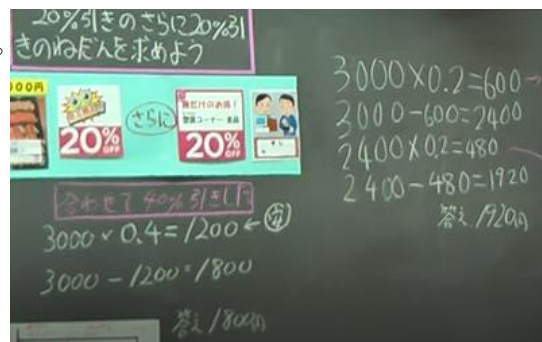 20%引きのさらに20%引
きのねだんを求めよう
000円
20%OFF
さらに
夜だけのお得！
惣菜コーナー 全品
20%OFF
合わせて40%引きした
3000×0.4=1200←
3000-1200=1800
答え 1800円
3000×0.2=600→
3000-600=2400
2400×0.2=480
2400-480=1920
答え 1920円